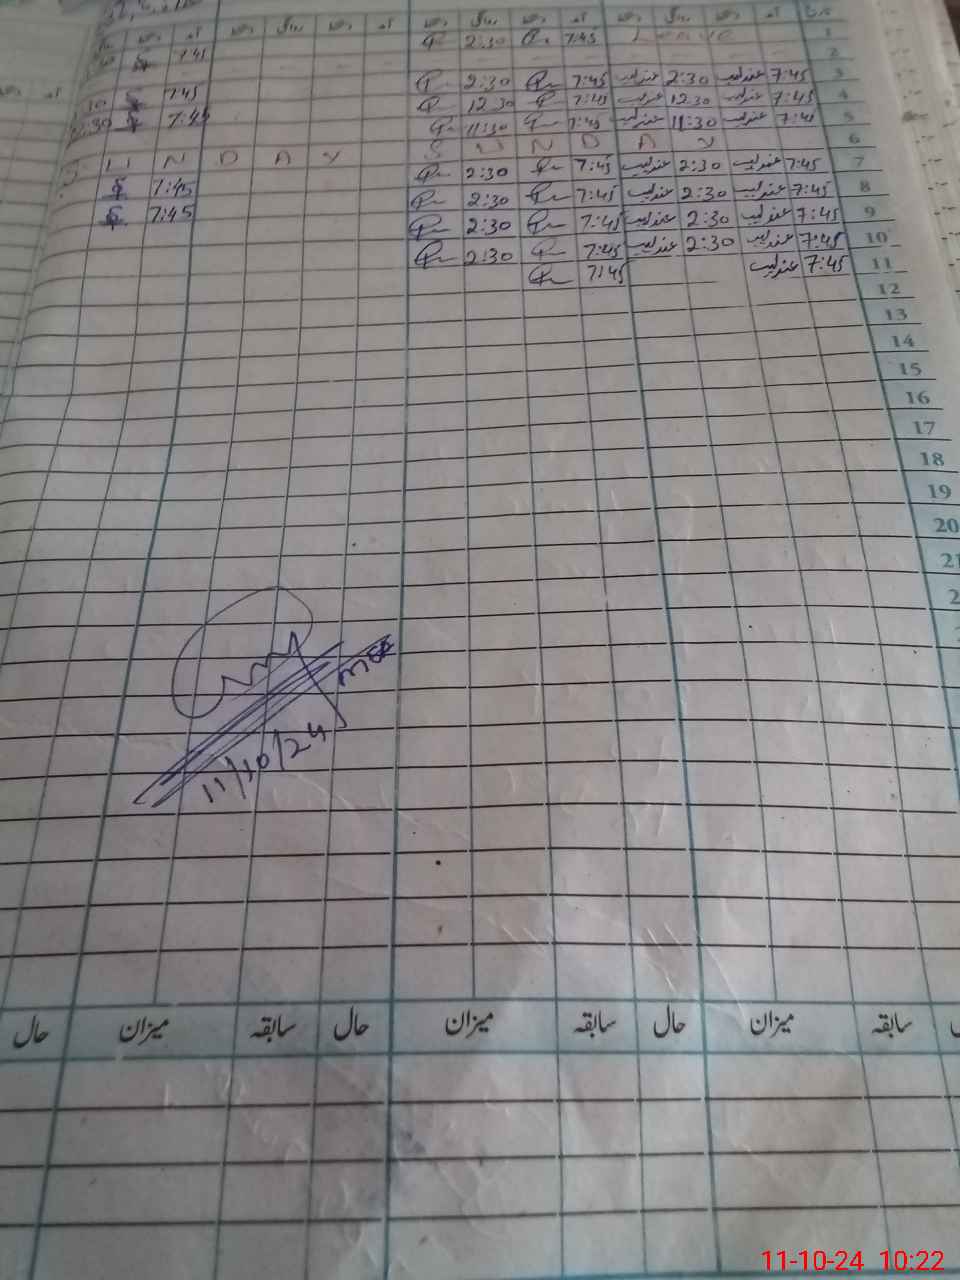 تاریخ آمد دستخط روانگی دستخط آمد دستخط روانگی دستخط آمد دستخط روانگی دستخط آمد
1 Leave 7:45 2:30 7:45
2
3 7:45 عندلیب 2:30 عندلیب 7:45 2:30 7:45
4 7:45 عندلیب 12:30 عندلیب 7:45 12:30 7:45
5 7:45 عندلیب 11:30 عندلیب 7:45 11:30
6 SUNDAY SUNDAY
7 7:45 عندلیب 2:30 عندلیب 7:45 2:30 7:45
8 7:45 عندلیب 2:30 عندلیب 7:45 2:30 7:45
9 7:45 عندلیب 2:30 عندلیب 7:45 2:30
10 7:45 عندلیب 2:30 عندلیب 7:45 2:30
11 7:45 عندلیب 7:45
12
13
14
15
16
17
18
19
20
21
11/10/24
سابقہ میزان حال سابقہ میزان حال سابقہ میزان حال
11-10-24 10:22